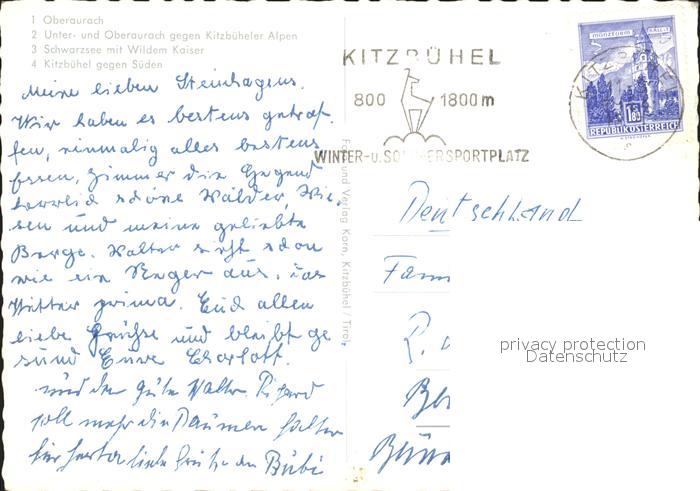 1 Oberaurach
2 Unter- und Oberaurach gegen Kitzbüheler Alpen
3 Schwarzsee mit Wildem Kaiser
4 Kitzbühel gegen Süden
Meine lieben Steinhagens.
Wir haben es bestens getrof-
fen, einmalig alles bestens
Essen, Zimmer die Gegend
herrlich schöne Wälder, Wie-
sen und meine geliebte
Berge. Walter sieht schon
wie ein Neger aus, das
Wetter prima. Euch allen
liebe Grüße und bleibt ge
sund Eure
und der gute Walter.
soll mehr die Daumen halten
liebe Grüße an Bubi
Foto und Verlag Korn, Kitzbühel / Tirol
KITZBÜHEL
800 1800m
WINTER-u.SOMMERSPORTPLATZ
MÜNZTURM HALL I. T.
1.80
REPUBLIK ÖSTERREICH
KITZBÜHEL
Deutschland
Fam
privacy protection
Datenschutz